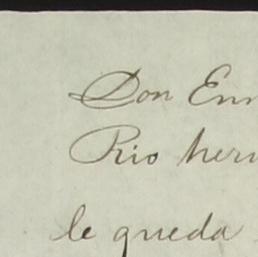 Don Enr
Rio her
le queda